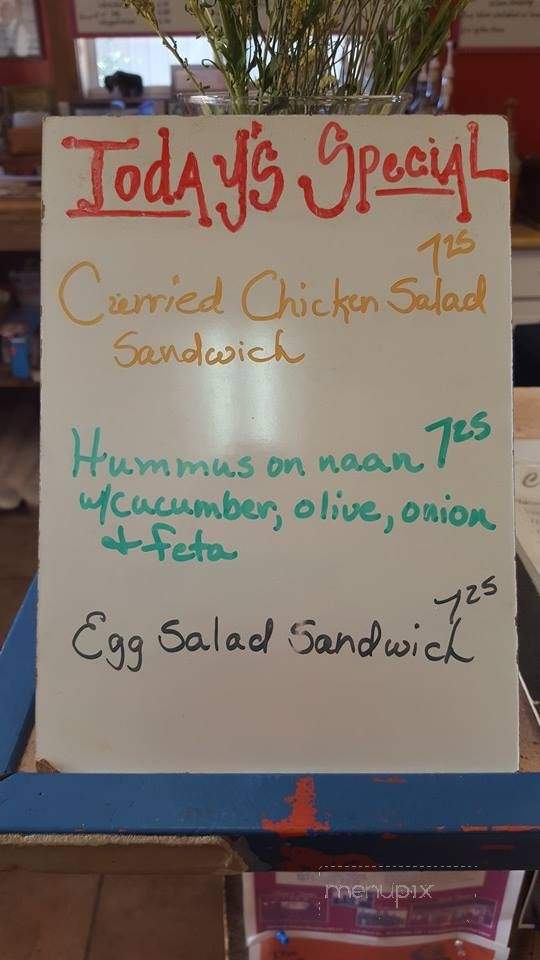 Today's Special
7.25
Curried Chicken Salad
Sandwich
Hummus on naan 7.25
w/cucumber, olive, onion
& feta
7.25
Egg Salad Sandwich
menupix